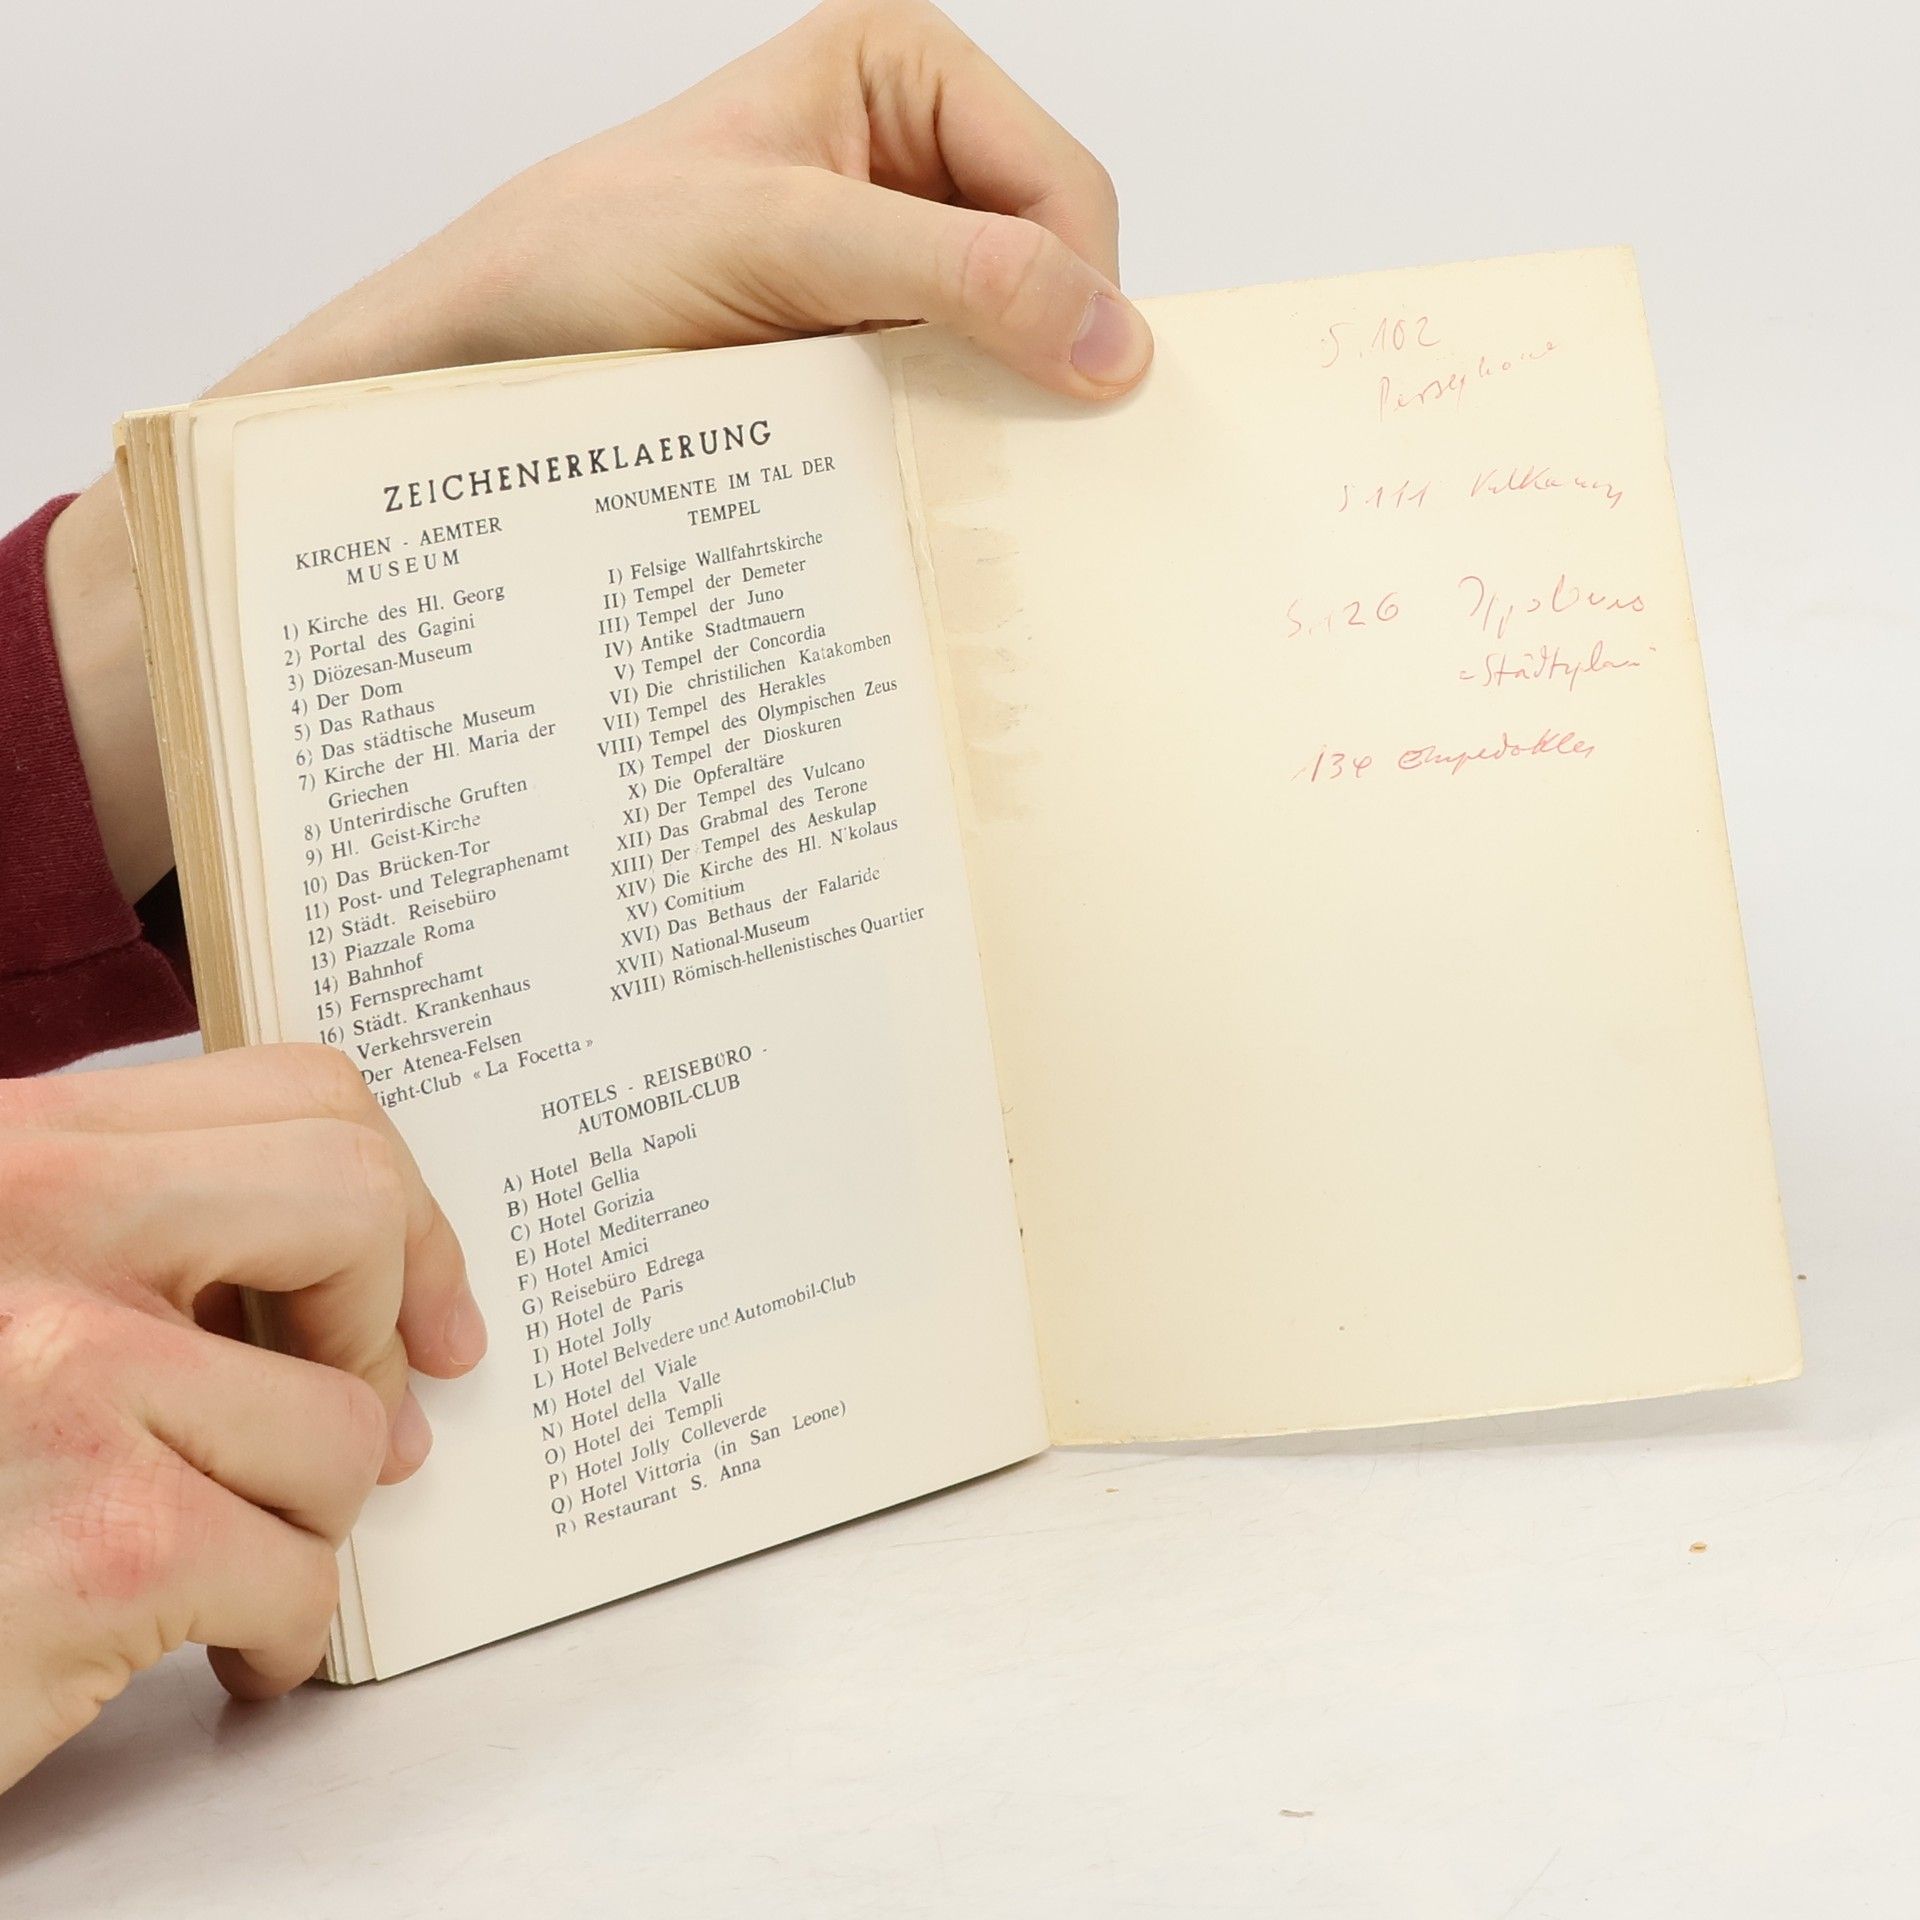 ZEICHENERKLAERUNG
KIRCHEN - AEMTER
MUSEUM
1) Kirche des Hl. Georg
2) Portal des Gagini
3) Diözesan-Museum
4) Der Dom
5) Das Rathaus
6) Das städtische Museum
7) Kirche der Hl. Maria der
Griechen
8) Unterirdische Gruften
9) Hl. Geist-Kirche
10) Das Brücken-Tor
11) Post- und Telegraphenamt
12) Städt. Reisebüro
13) Piazzale Roma
14) Bahnhof
15) Fernsprechamt
16) Städt. Krankenhaus
Verkehrsverein
Der Atenea-Felsen
ight-Club « La Focetta »
MONUMENTE IM TAL DER
TEMPEL
I) Felsige Wallfahrtskirche
II) Tempel der Demeter
III) Tempel der Juno
IV) Antike Stadtmauern
V) Tempel der Concordia
VI) Die christilichen Katakomben
VII) Tempel des Herakles
VIII) Tempel des Olympischen Zeus
IX) Tempel der Dioskuren
X) Die Opferaltäre
XI) Der Tempel des Vulcano
XII) Das Grabmal des Terone
XIII) Der Tempel des Aeskulap
XIV) Die Kirche des Hl. N'kolaus
XV) Comitium
XVI) Das Bethaus der Falaride
XVII) National-Museum
XVIII) Römisch-hellenistisches Quartier
HOTELS - REISEBÜRO -
AUTOMOBIL-CLUB
A) Hotel Bella Napoli
B) Hotel Gellia
C) Hotel Gorizia
E) Hotel Mediterraneo
F) Hotel Amici
G) Reisebüro Edrega
H) Hotel de Paris
I) Hotel Jolly
L) Hotel Belvedere und Automobil-Club
M) Hotel del Viale
N) Hotel della Valle
O) Hotel dei Templi
P) Hotel Jolly Colleverde
Q) Hotel Vittoria (in San Leone)
R) Restaurant S. Anna
S. 102
Persephone
S 111
S. 126
134 Empedokles